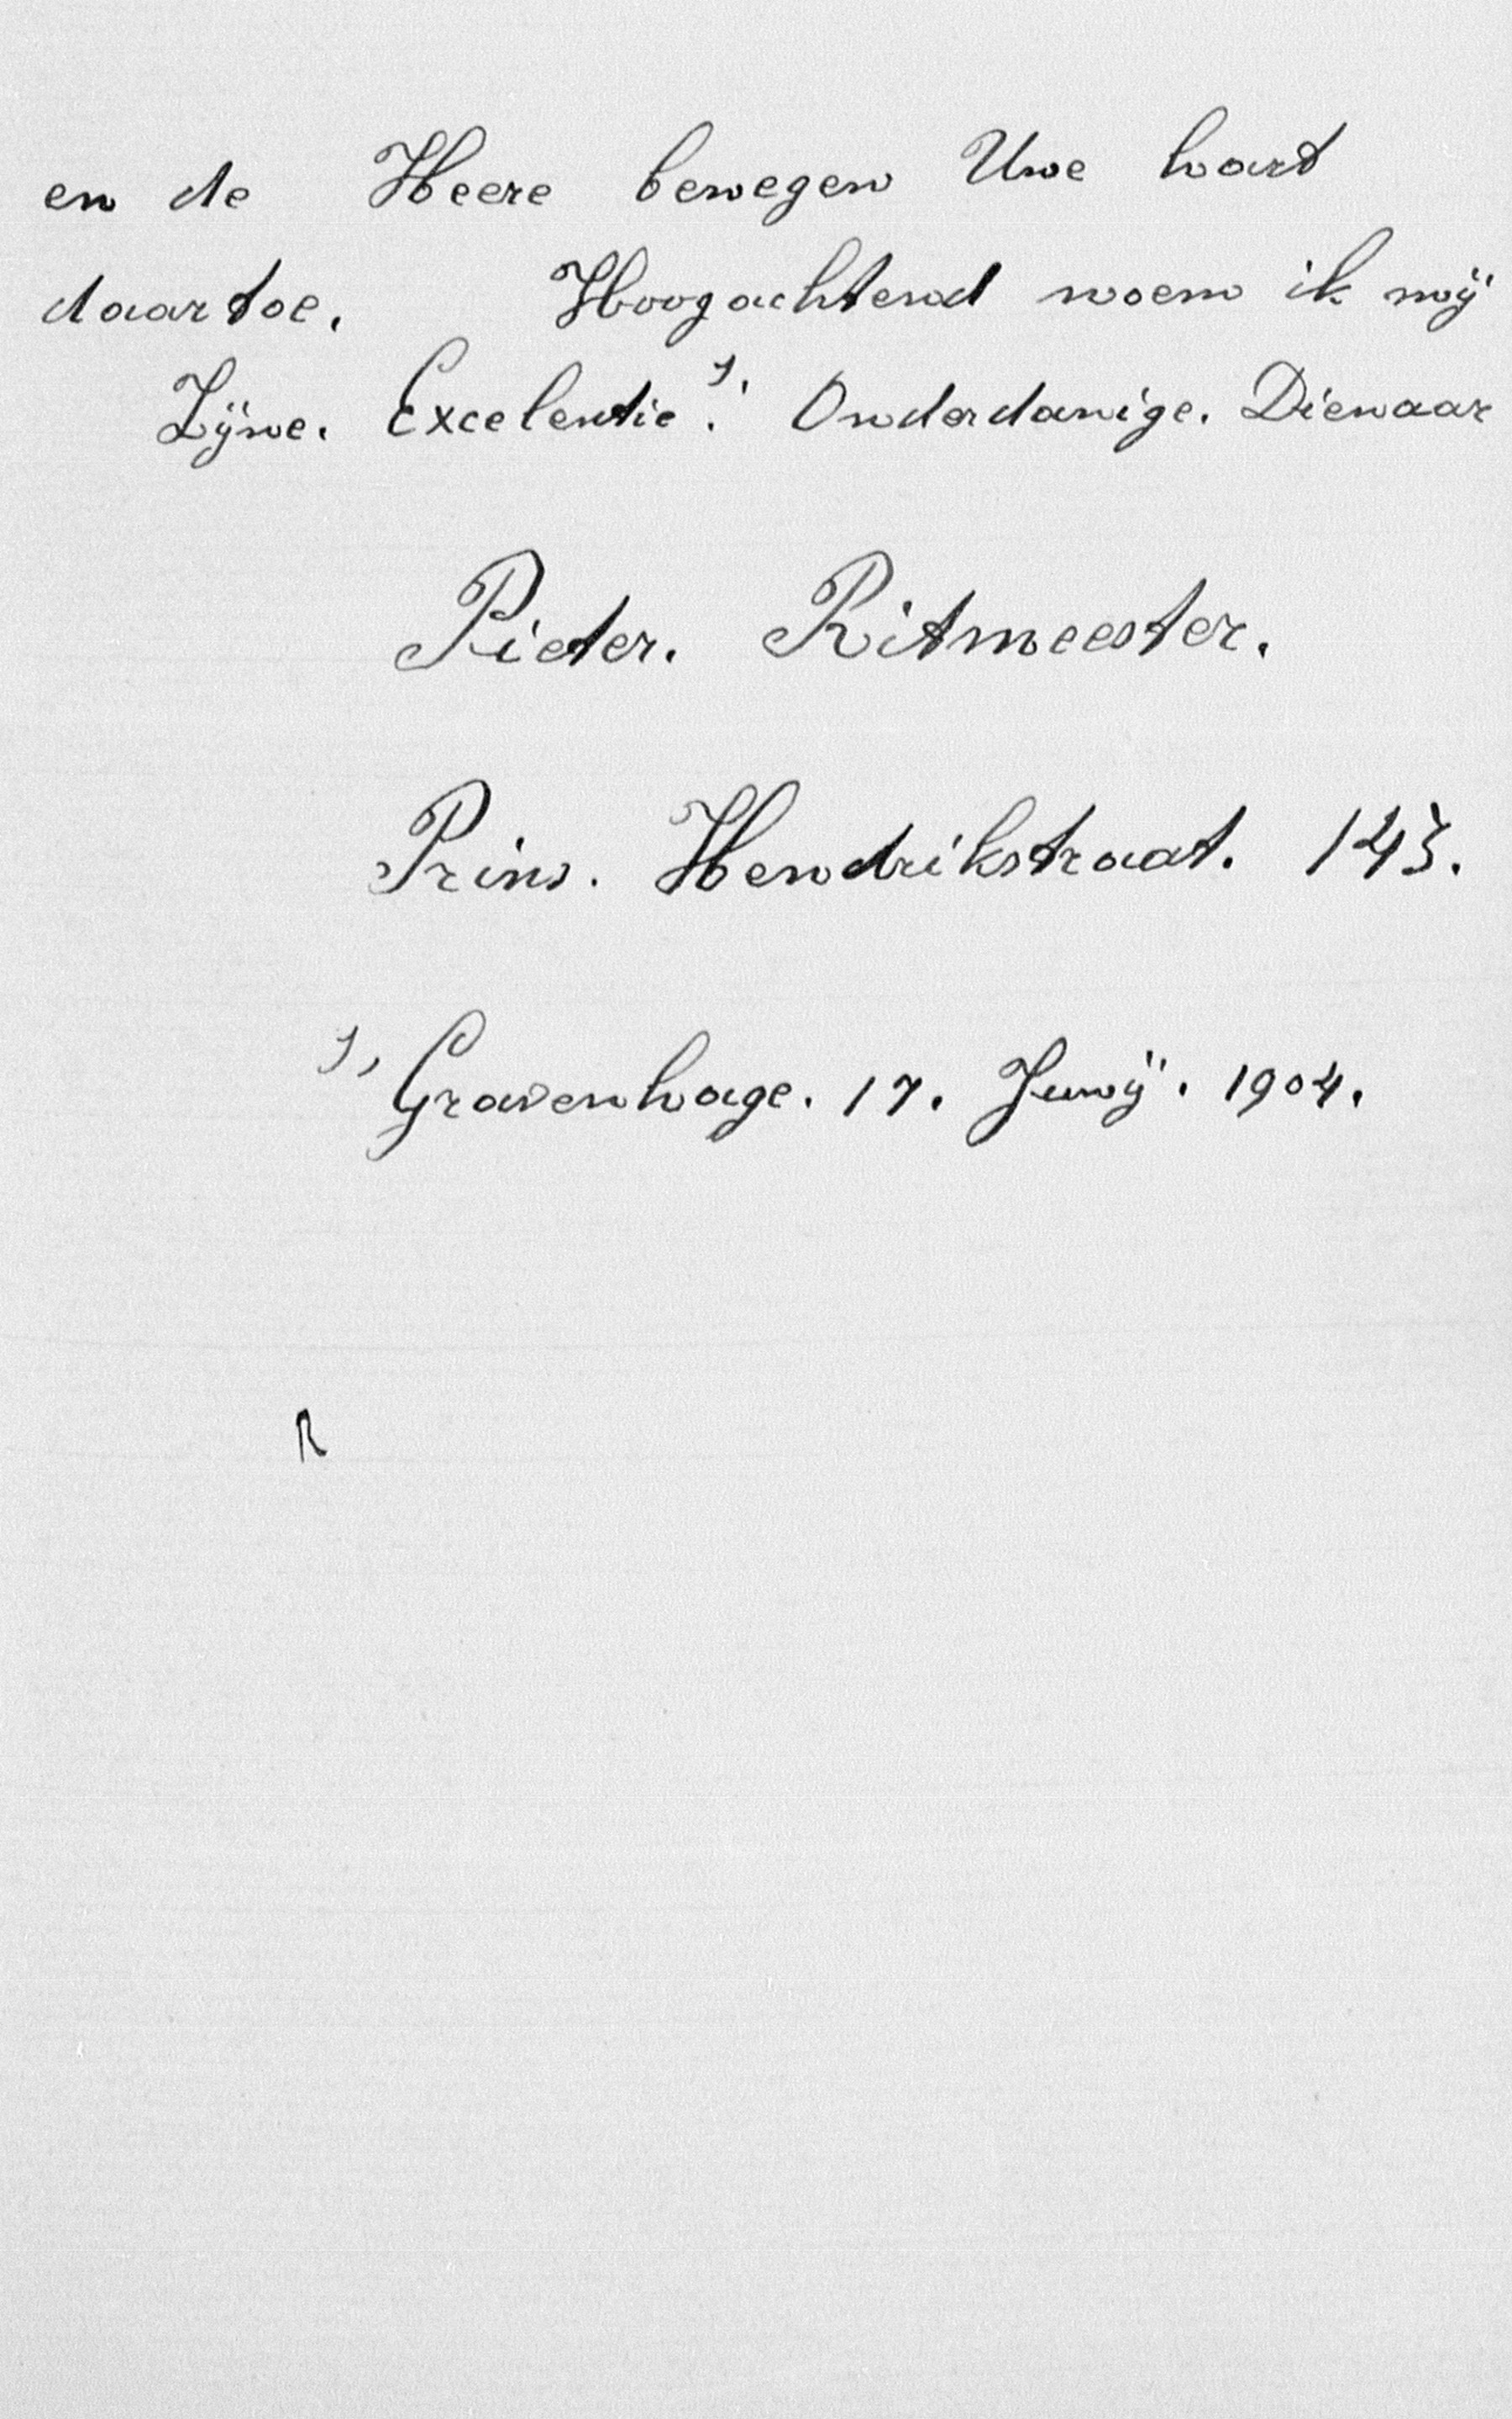 en de Heere bewegen Uwe hart
daartoe. Hoogachtend noem ik mij
Zijne. Excelentie's. Onderdanige. Dienaar
Pieter. Ritmeester.
Prins. Hendrikstraat. 143.
s, Gravenhage. 17. Junij. 1904.
R